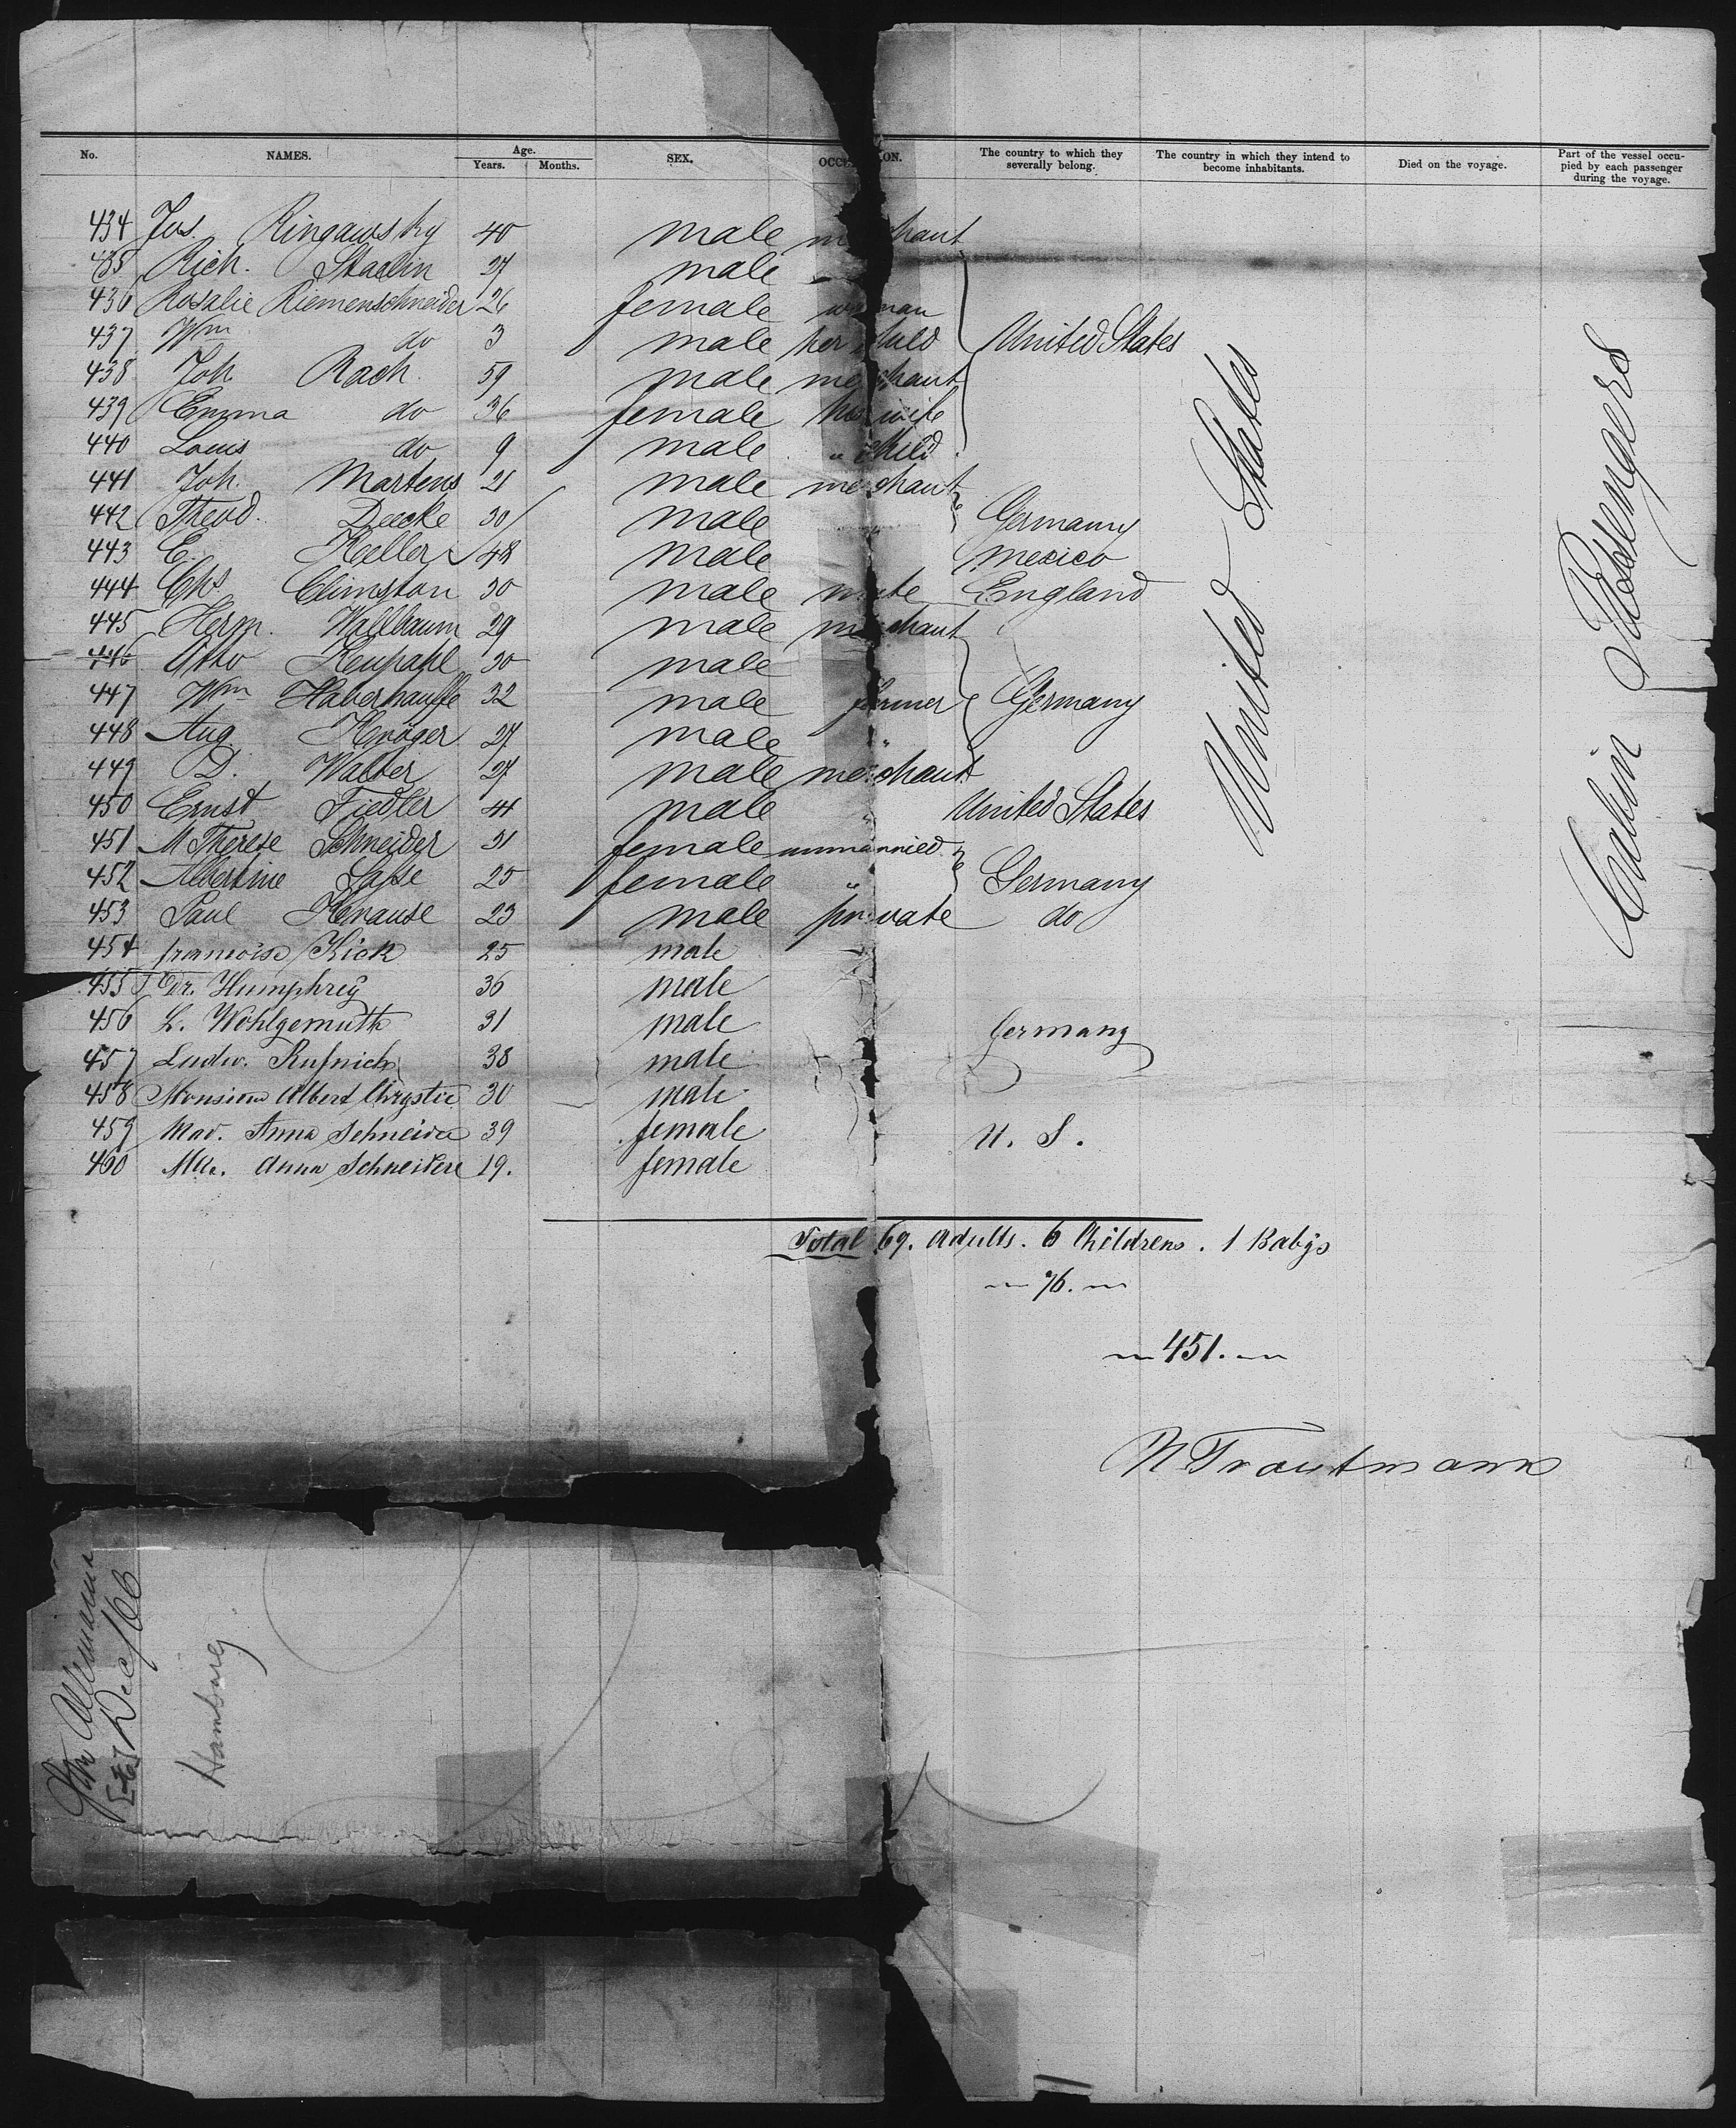 No. NAMES. Age. Years. Months. SEX. OCCU ON. The country to which they severally belong. The country in which they intend to become inhabitants. Died on the voyage. Part of the vessel occupied by each passenger during the voyage.
434 Jos. Ringawsky 40 male merchant
435 Rich. Staelin 27 male "
436 Rosalie Riemenschneider 26 female woman
437 Wm do 3 male her child United States
438 Joh Rach. 59 male merchant
439 Emma do 36 female his wife
440 Louis do 9 male " child
441 Joh. Martens 21 male merchant
442 Theod. Deecke 30 male " Germany
443 E. Keller 48 male Mexico
444 Chs Climston 30 male mate England
445 Herm. Wallbaum 29 male merchant
446 Otto Keupahl 30 male
447 Wm Haberhauffe 32 male farmer Germany
448 Aug Kröger 27 male "
449 D. Walter 27 male merchant
450 Ernst Fiedler 41 male " United States
451 M Therese Schneider 21 female unmarried
452 Albertine Sasse 25 female " Germany
453 Paul Krause 23 male private do
454 francoise Kick 25 male
455 Dr. Humphrey 36 male
456 L. Wohlgemuth 31 male Germany
457 Ludw. 38 male
458 Monsieur Albert Chrystie 30 male
459 Mad. Anna Schneider 39 female U. S.
460 Mlle. Anna Schneidere 19. female
United States
Cabin Passengers
Total 69. Adults. 6 Childrens. 1 Babys
76.
451.
N Trautmann
Allemannia
Dec/66
Hamburg